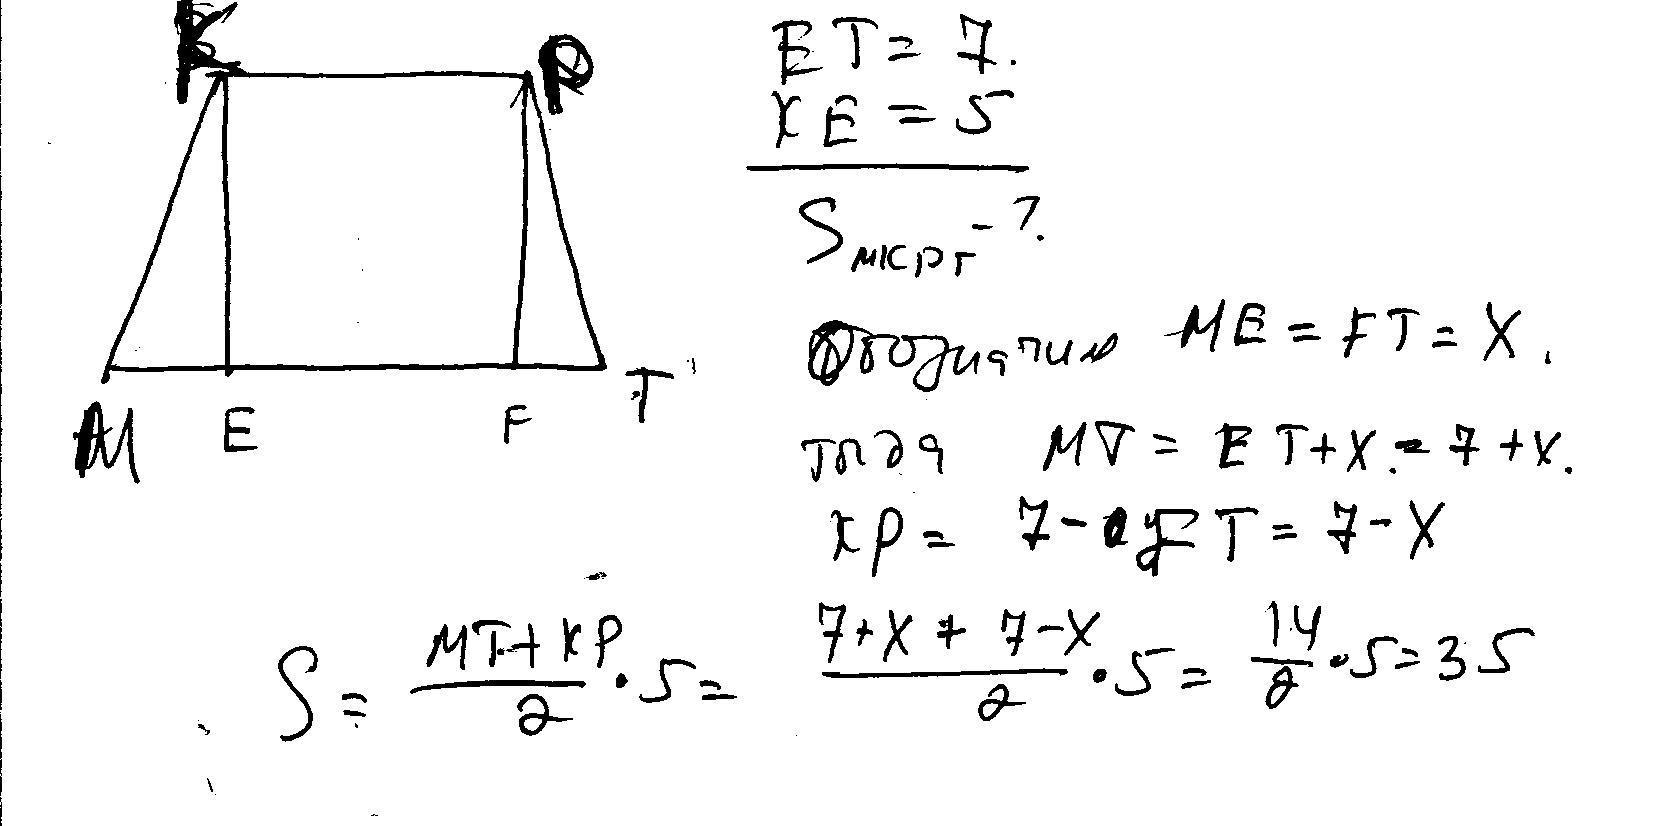 K P
M E F T
ET = 7.
KE = 5
S MKPT - ?.
Обозначим ME = FT = X.
тогда MT = ET + X = 7 + X.
KP = 7 - FT = 7 - X
S = MT + KP / 2 · 5 = 7 + X + 7 - X / 2 · 5 = 14 / 2 · 5 = 35